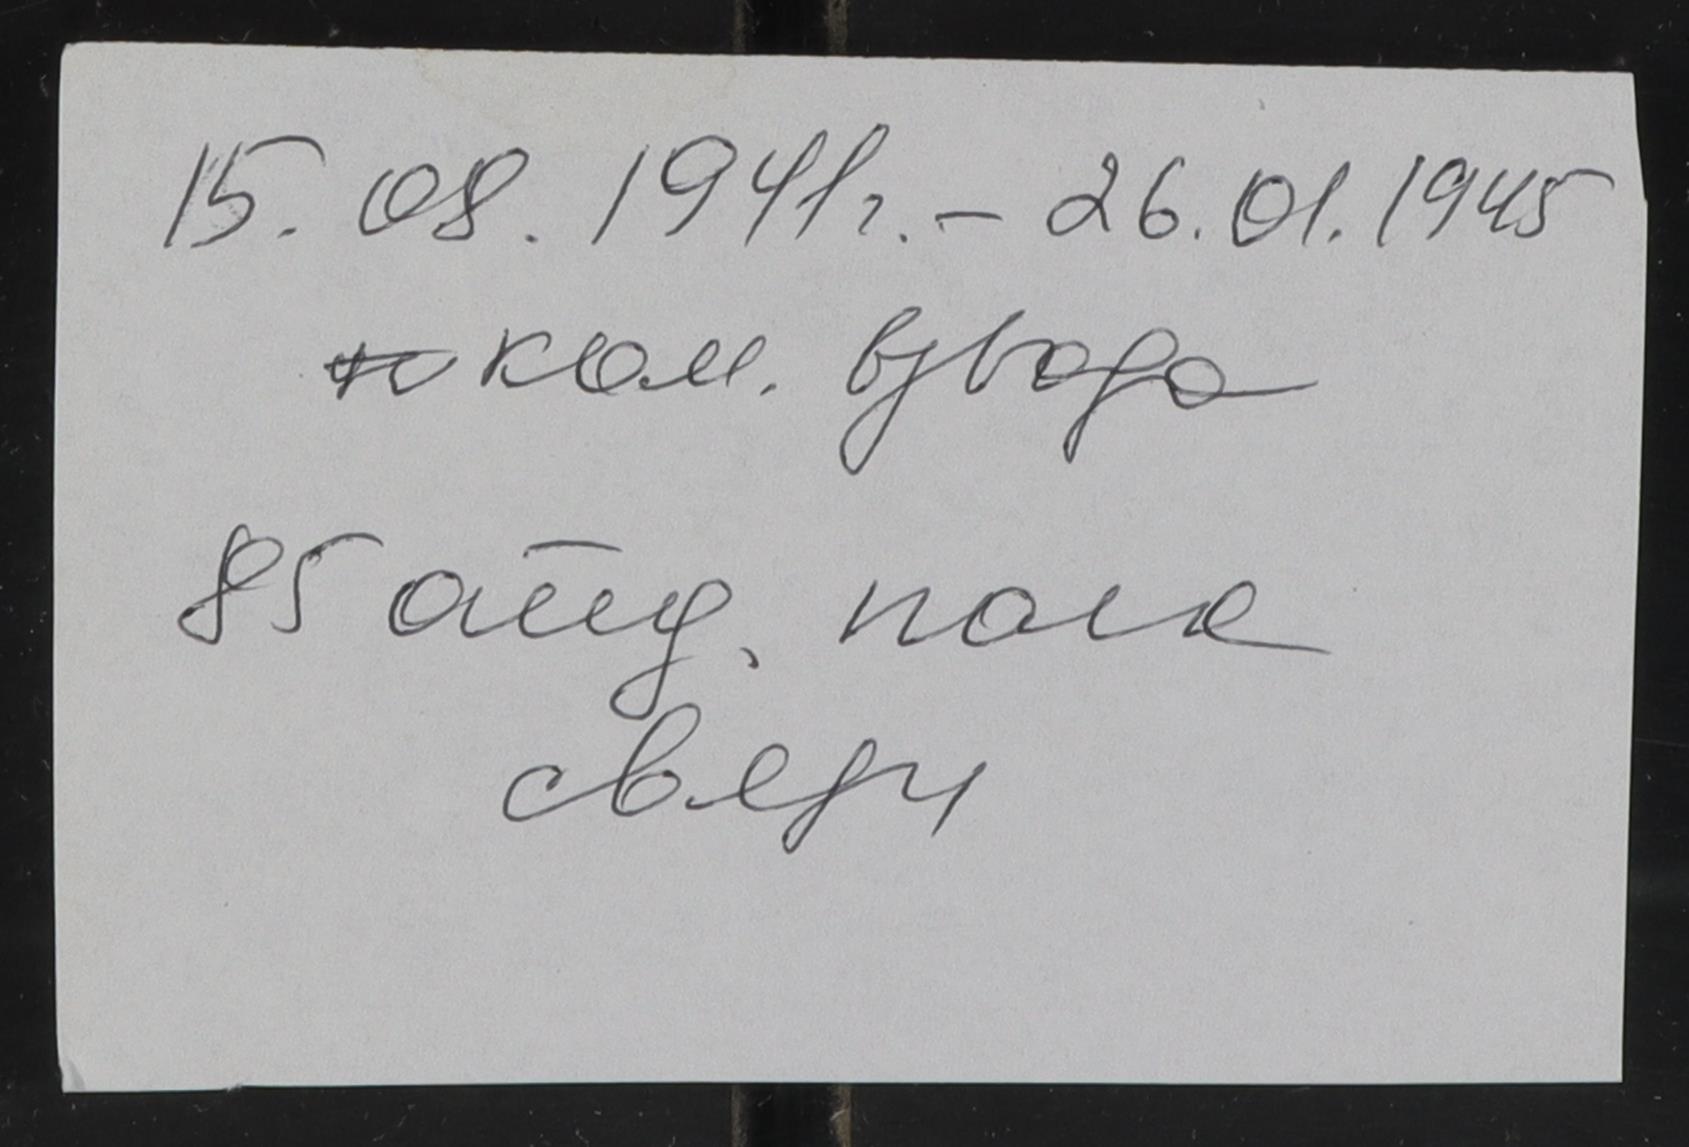 15.08.1941г. – 26.01.1945
ком. взвода
85 отд. полк
связи